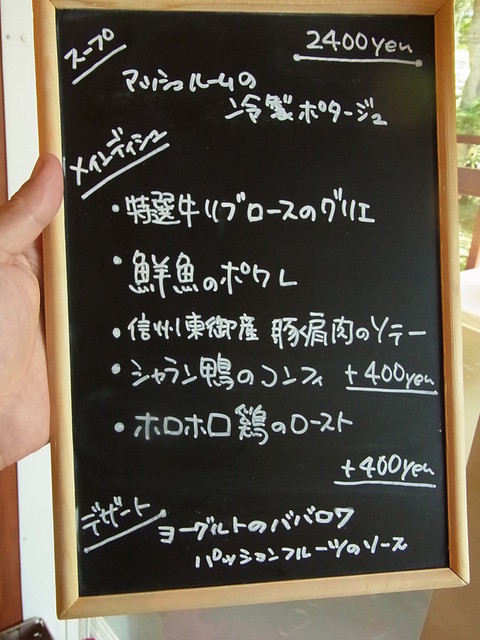 スープ
2400yen
マッシュルームの
冷製ポタージュ
メインディシュ
・特選牛リブロースのグリエ
・鮮魚のポワレ
・信州東御産 豚肩肉のソテー
・シャラン鴨のコンフィ +400yen
・ホロホロ鶏のロースト
+400yen
デザート
ヨーグルトのババロワ
パッションフルーツのソース